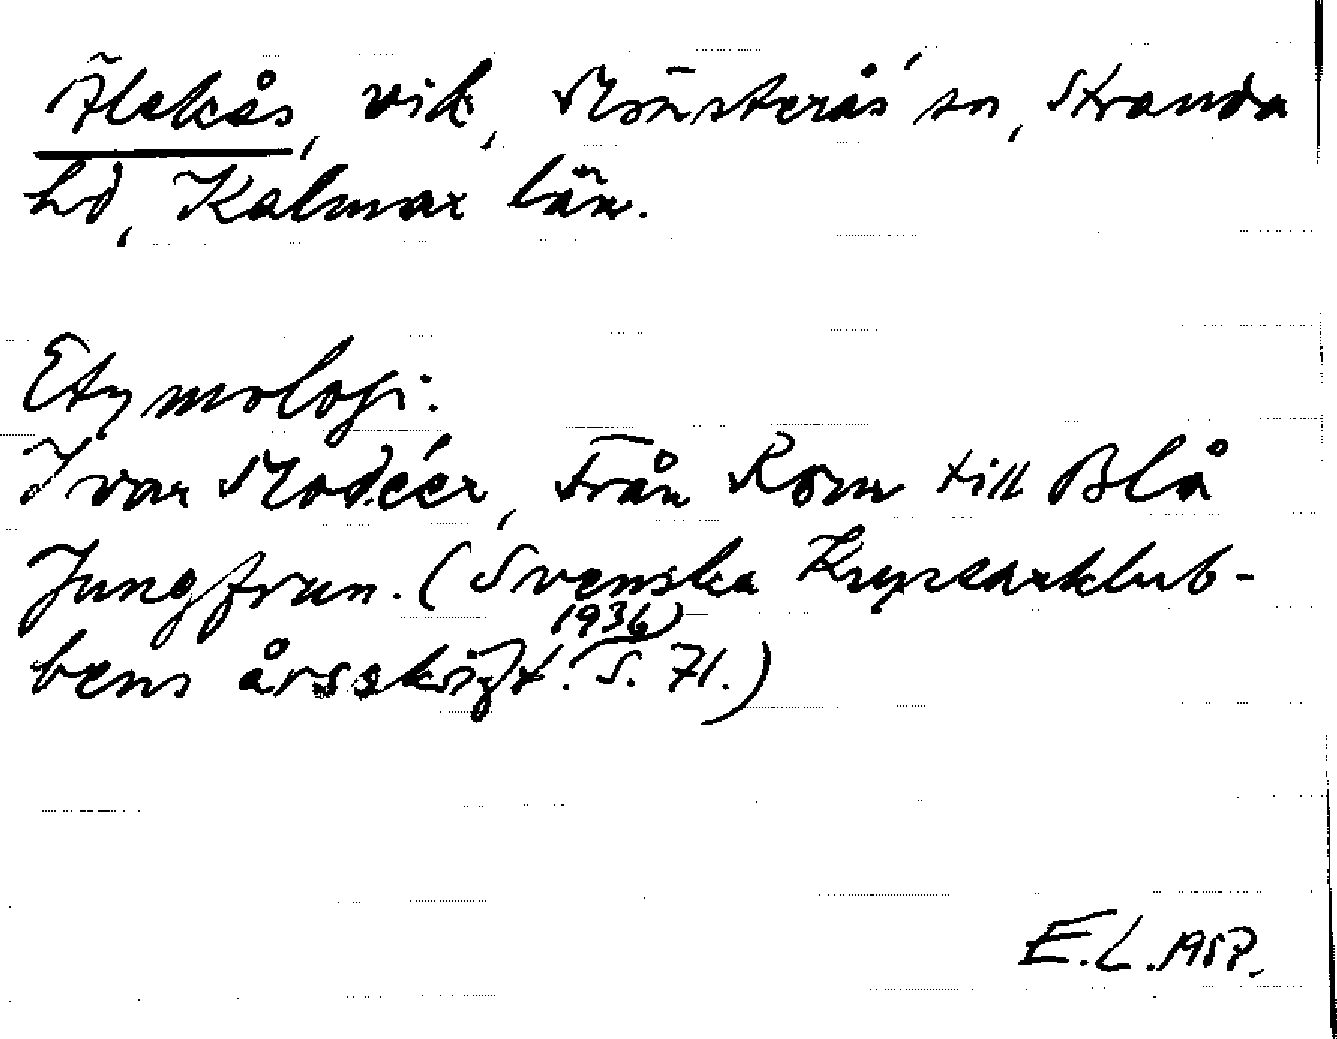 Älekås, vik, Mönsterås sn, Stranda
hd, Kalmar län.
Etymologi:
Ivar Modéer, Från Rom till Blå
Jungfrun. (Svenska Kryssarklub-
bens årsskrift. 1936) S. 71.)
E.L. 1957.